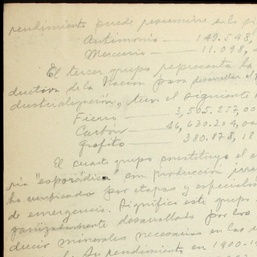 rendimiento puede resumirse
Antimonio — 149.548,
Mercurio — 11.098,
El tercer grupo representa
ductor de la Nación para desarrollar
dustrialización, y tien el siguiente
Fierro — 3,505.257,00
Carbón — 46,630.204,00
Grafito — 380.878,18
El cuarto grupo constituye el
ría "esporádica" con producción
ha verificado por etapas y
de emergencia. Significa este grupo
desarrollado por los
ducir minerales necesarios en las
Su rendimiento en 1900-19